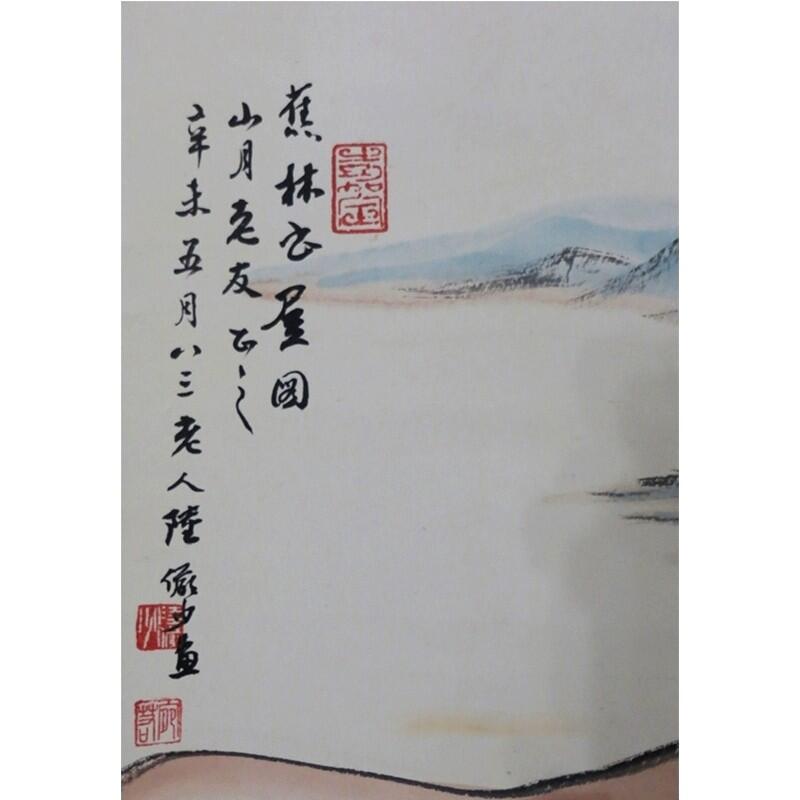 蕉林书屋图
山月老友正之
辛未五月八三老人陸儼少画
嘉定